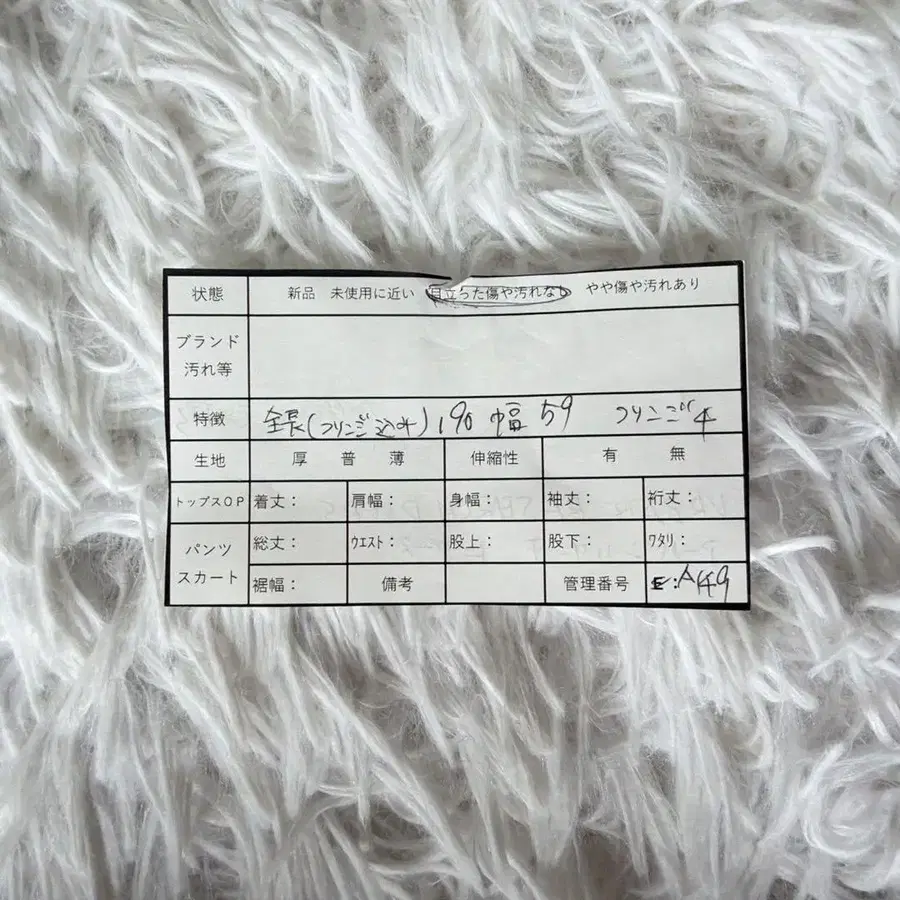 状態 新品 未使用に近い 目立った傷や汚れなし やや傷や汚れあり
ブランド
汚れ等
特徴 全長(フリンジ込み) 190 幅 59 フリンジ 4
生地 厚 普 薄 伸縮性 有 無
トップスOP 着丈: 肩幅: 身幅: 袖丈: 裄丈:
パンツ
スカート
総丈: ウエスト: 股上: 股下: ワタリ:
裾幅: 備考 管理番号 E:A149